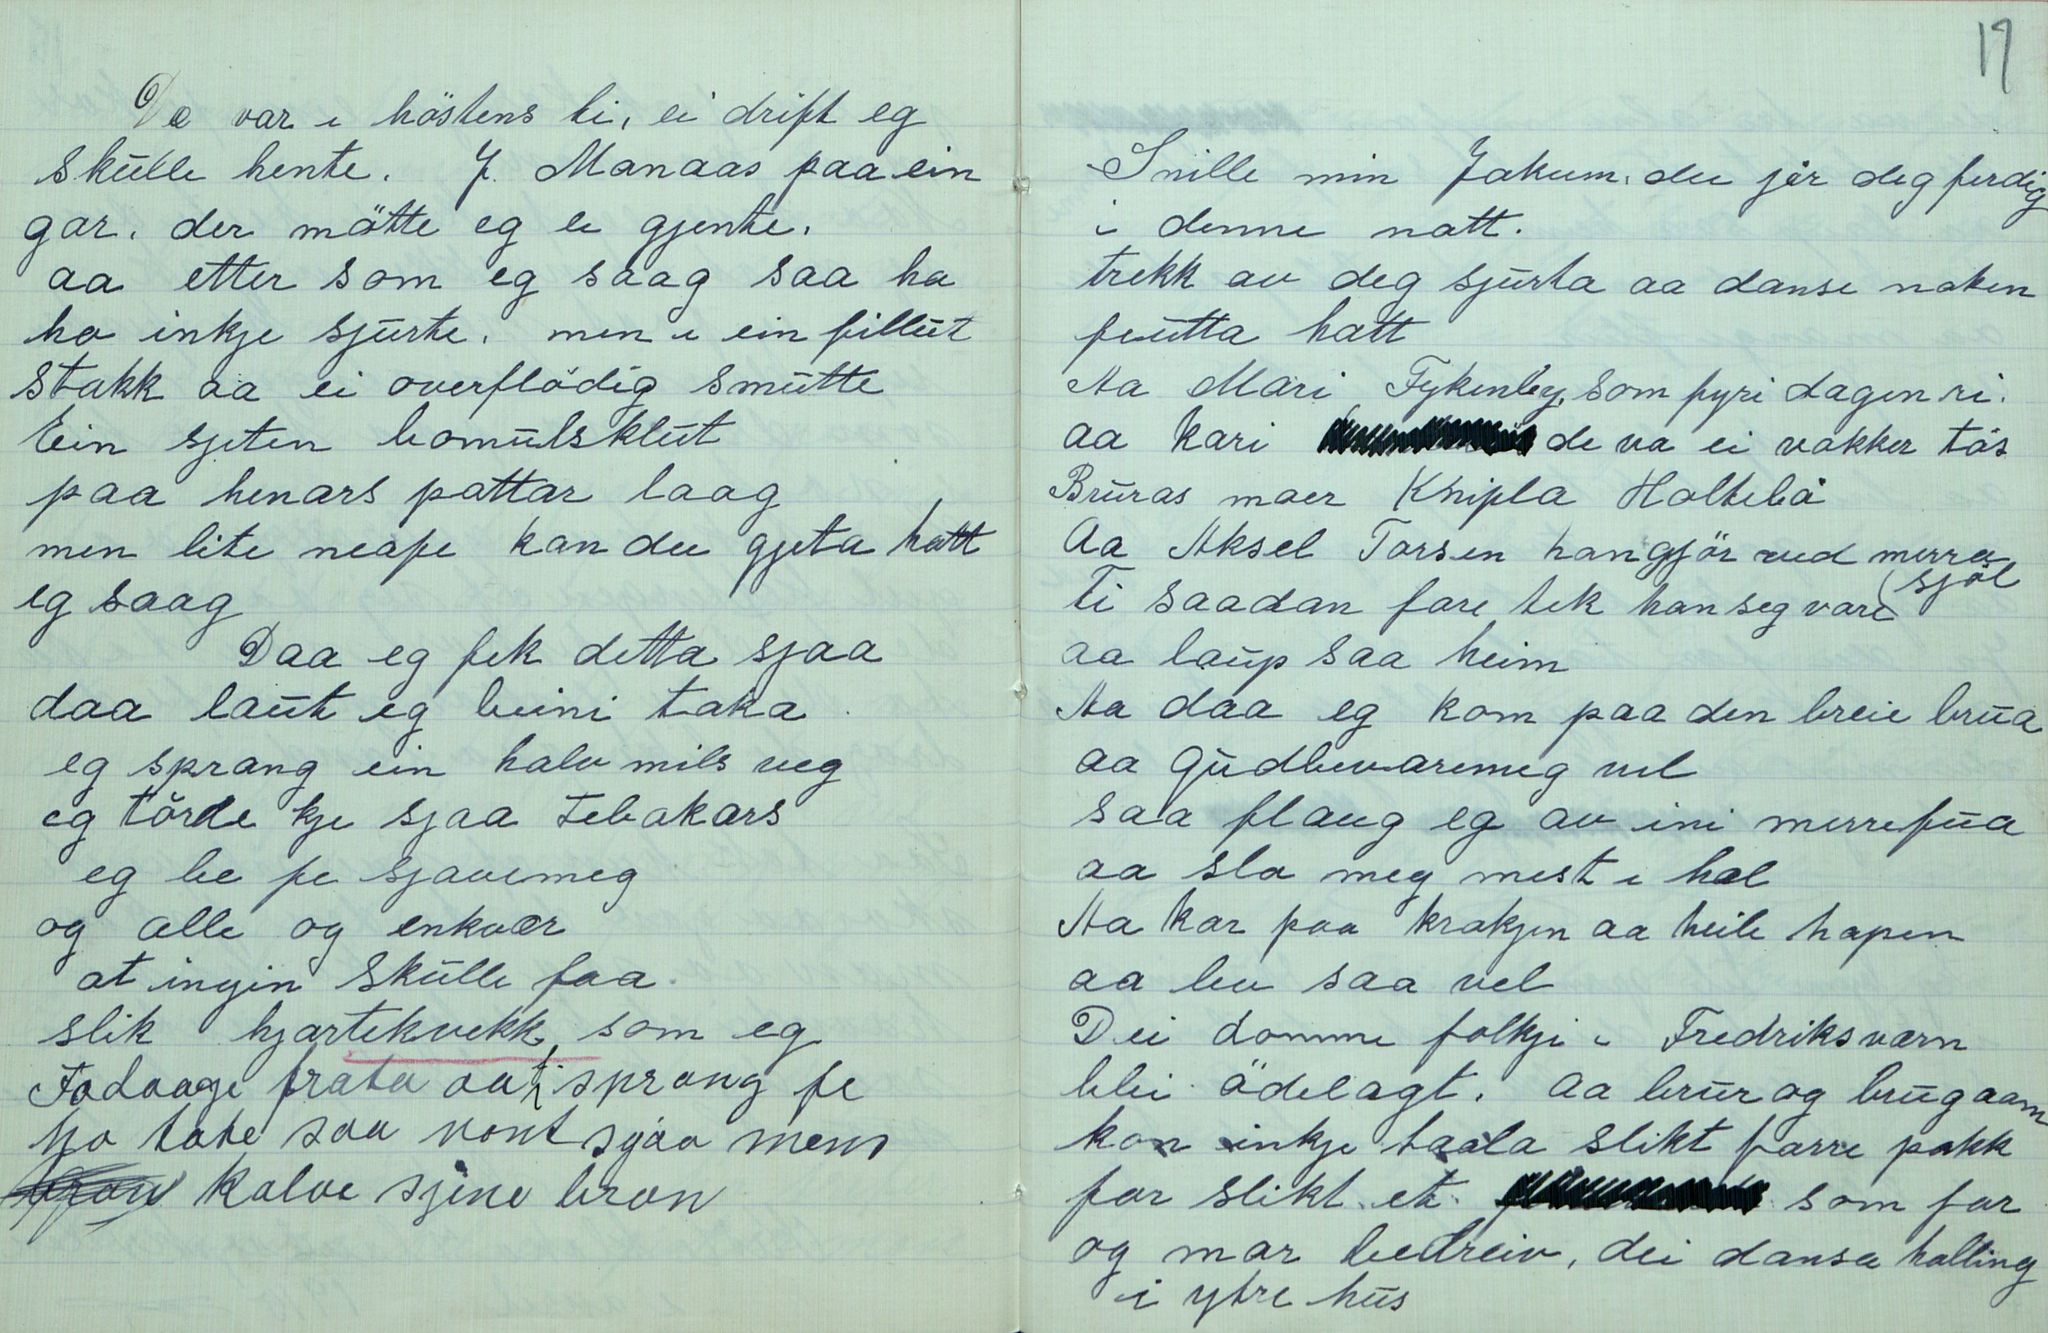 De var i höstens ti, ei drift eg
skulle hente. J. Manaas paa ein
gar. der mötte eg ei gjente.
aa etter som eg saag saa ha
ho inkje sjurte. men i ein fillut
stakk aa ei overflödig smutte
Ein sjeten bomulsklut
paa henars pattar laag
men lite neafe kan du gjeta hatt
eg saag
Daa eg fek detta sjaa
daa laut eg beini taka
eg sprang ein halv mils veg
eg törde kje sjaa tebakars
eg be fe sjavemeg
og alle og enkvær
at ingin skulle faa
slik hjartekvekk, som eg
sprang fe
saa vont sjaa mens
kalve sjine bron
19
Snille min Jakum, du jer deg ferdig
i denne natt.
trekk av deg sjurta aa danse naken
futta hatt
Aa Mari Fykenby, som fyri dagen ri.
aa Kari de va ei vakker tös
Bruras moer Knipla Holtebö
Aa Aksel Torsen han gjör ved merra
Ti saadan fare tek han seg vare sjöl
aa laup saa heim
Aa daa eg kom paa den breie brua
aa Gudbevaremeg vel
saa flaug eg av ini merrefua
aa slo meg mest i hel
Aa kar paa krakjen aa heile hapen
aa lev saa vel
Dei domme folkje i Fredriksværn
blei ödelagt. Aa brur og brugaam
kan inkje taala slikt farre pakk
for slikt et som far
og mor bedreiv, dei dansa halling
i ytre hus